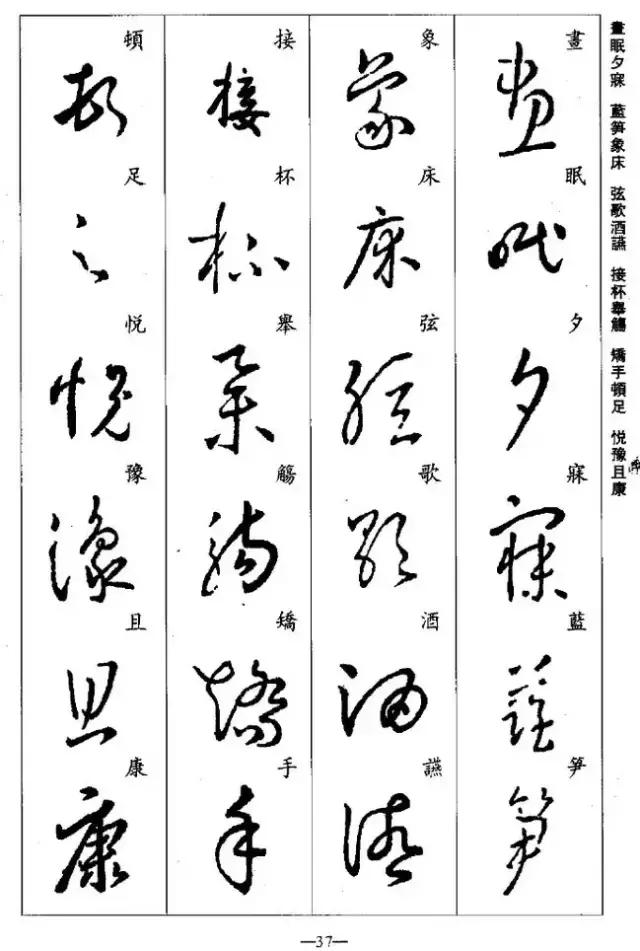 畫眠夕寐 藍笋象床 弦歌酒讌 接杯舉觴 矯手頓足 悦豫且康
畫
眠
夕
寐
藍
笋
象
床
弦
歌
酒
讌
接
杯
舉
觴
矯
手
頓
足
悦
豫
且
康
—37—